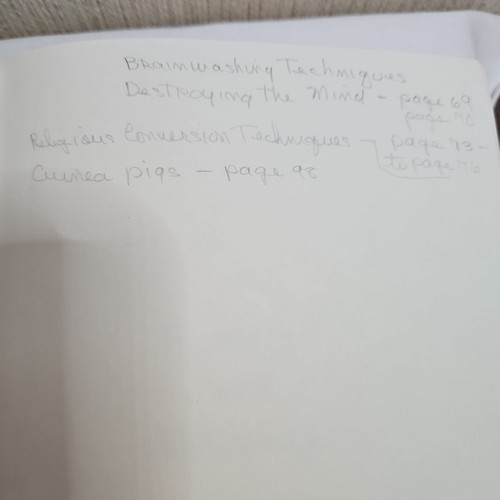 Brainwashing Techniques
Destroying the Mind - page 69
page 70
Religious Conversion Techniques - page 73 -
to page 76
Guinea pigs - page 98